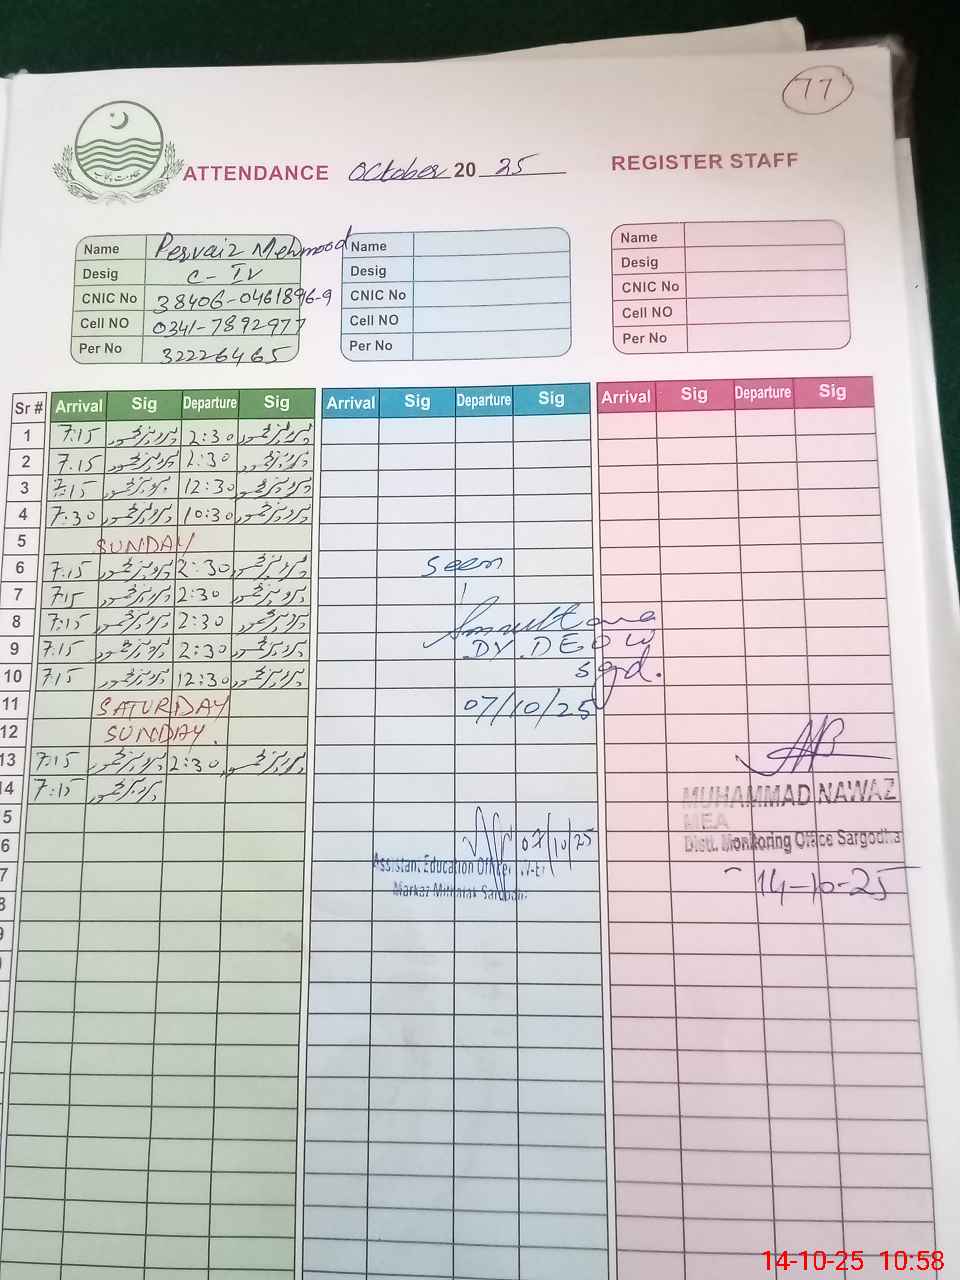 77
حکومت پنجاب
ATTENDANCE October 20 25 REGISTER STAFF
Name Pervaiz Mehmood
Desig C-IV
CNIC No 38406-0461896-9
Cell NO 0341-7892977
Per No 32226465
Name
Desig
CNIC No
Cell NO
Per No
Name
Desig
CNIC No
Cell NO
Per No
Sr # Arrival Sig Departure Sig Arrival Sig Departure Sig Arrival Sig Departure Sig
1 7:15 پرویز محمود 2:30 پرویز محمود
2 7.15 پرویز محمود 2:30 پرویز محمود
3 7:15 پرویز محمود 12:30 پرویز محمود
4 7:30 پرویز محمود 10:30 پرویز محمود
5 SUNDAY
6 7:15 پرویز محمود 2:30 پرویز محمود
7 7:15 پرویز محمود 2:30 پرویز محمود
8 7:15 پرویز محمود 2:30 پرویز محمود
9 7:15 پرویز محمود 2:30 پرویز محمود
10 7:15 پرویز محمود 12:30 پرویز محمود
11 SATURDAY
12 SUNDAY.
13 7:15 پرویز محمود 2:30 پرویز محمود
14 7:15 پرویز محمود
5
6
7
8
9
seen
DY. DEO W
sgd.
07/10/25
07/10/25
Assistant Education Officer
Markaz
MUHAMMAD NAWAZ
MEA
Distt. Monitoring Office Sargodha
14-10-25
14-10-25 10:58